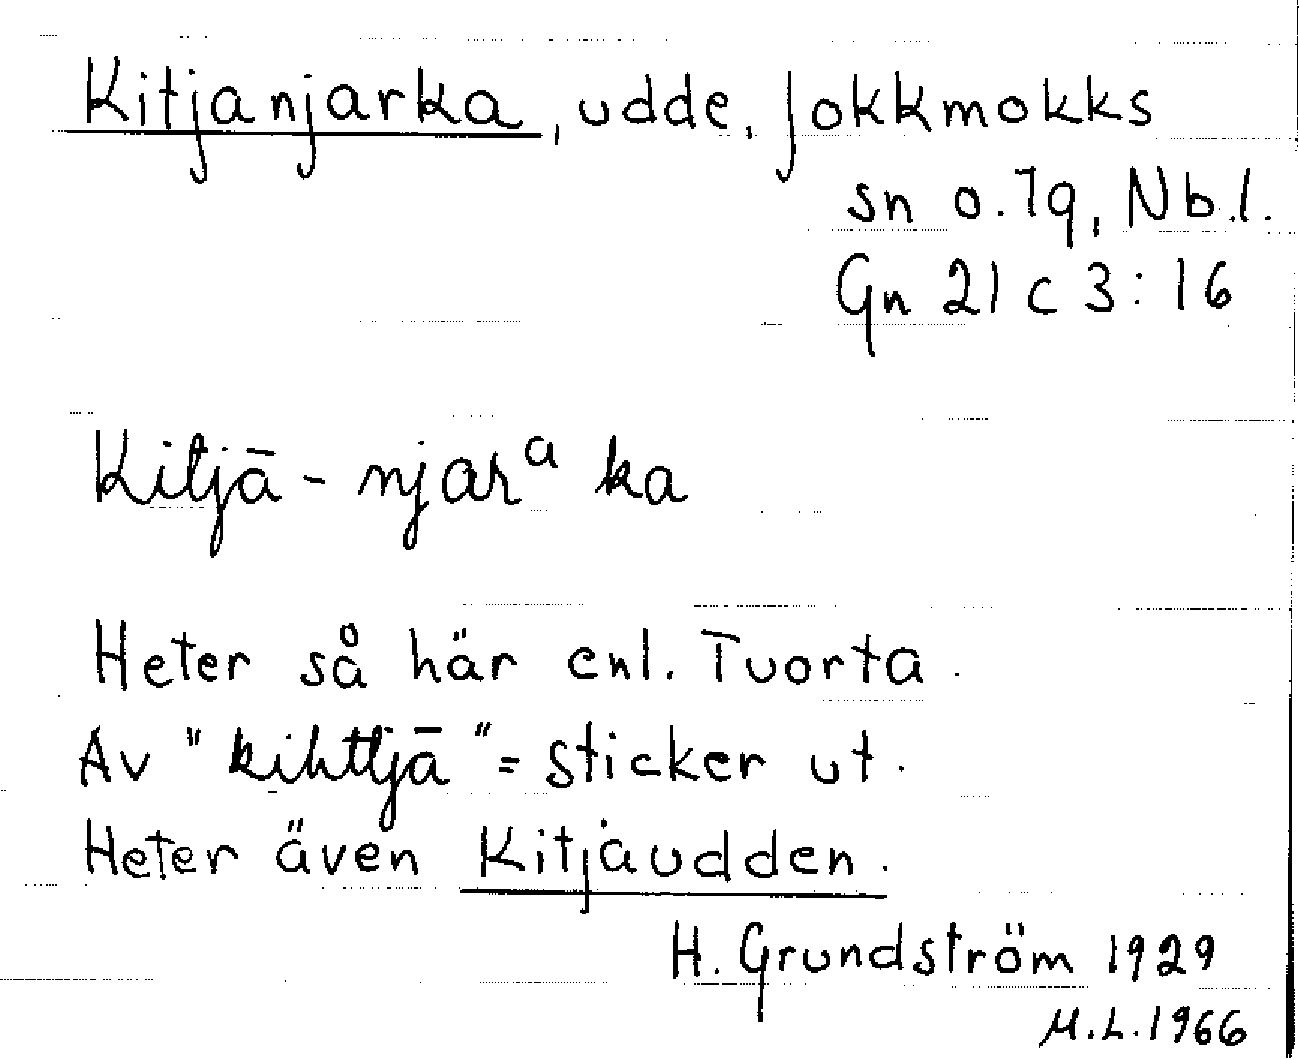 Kitjanjarka, udde, Jokkmokks
sn o. lg, Nb. l.
Gn 21 c 3:16
Kitjā - njarᵃ ka
Heter så här enl. Tuorta.
Av "kihttjā" = sticker ut.
Heter även Kitjaudden.
H. Grundström 1929
M.L. 1966